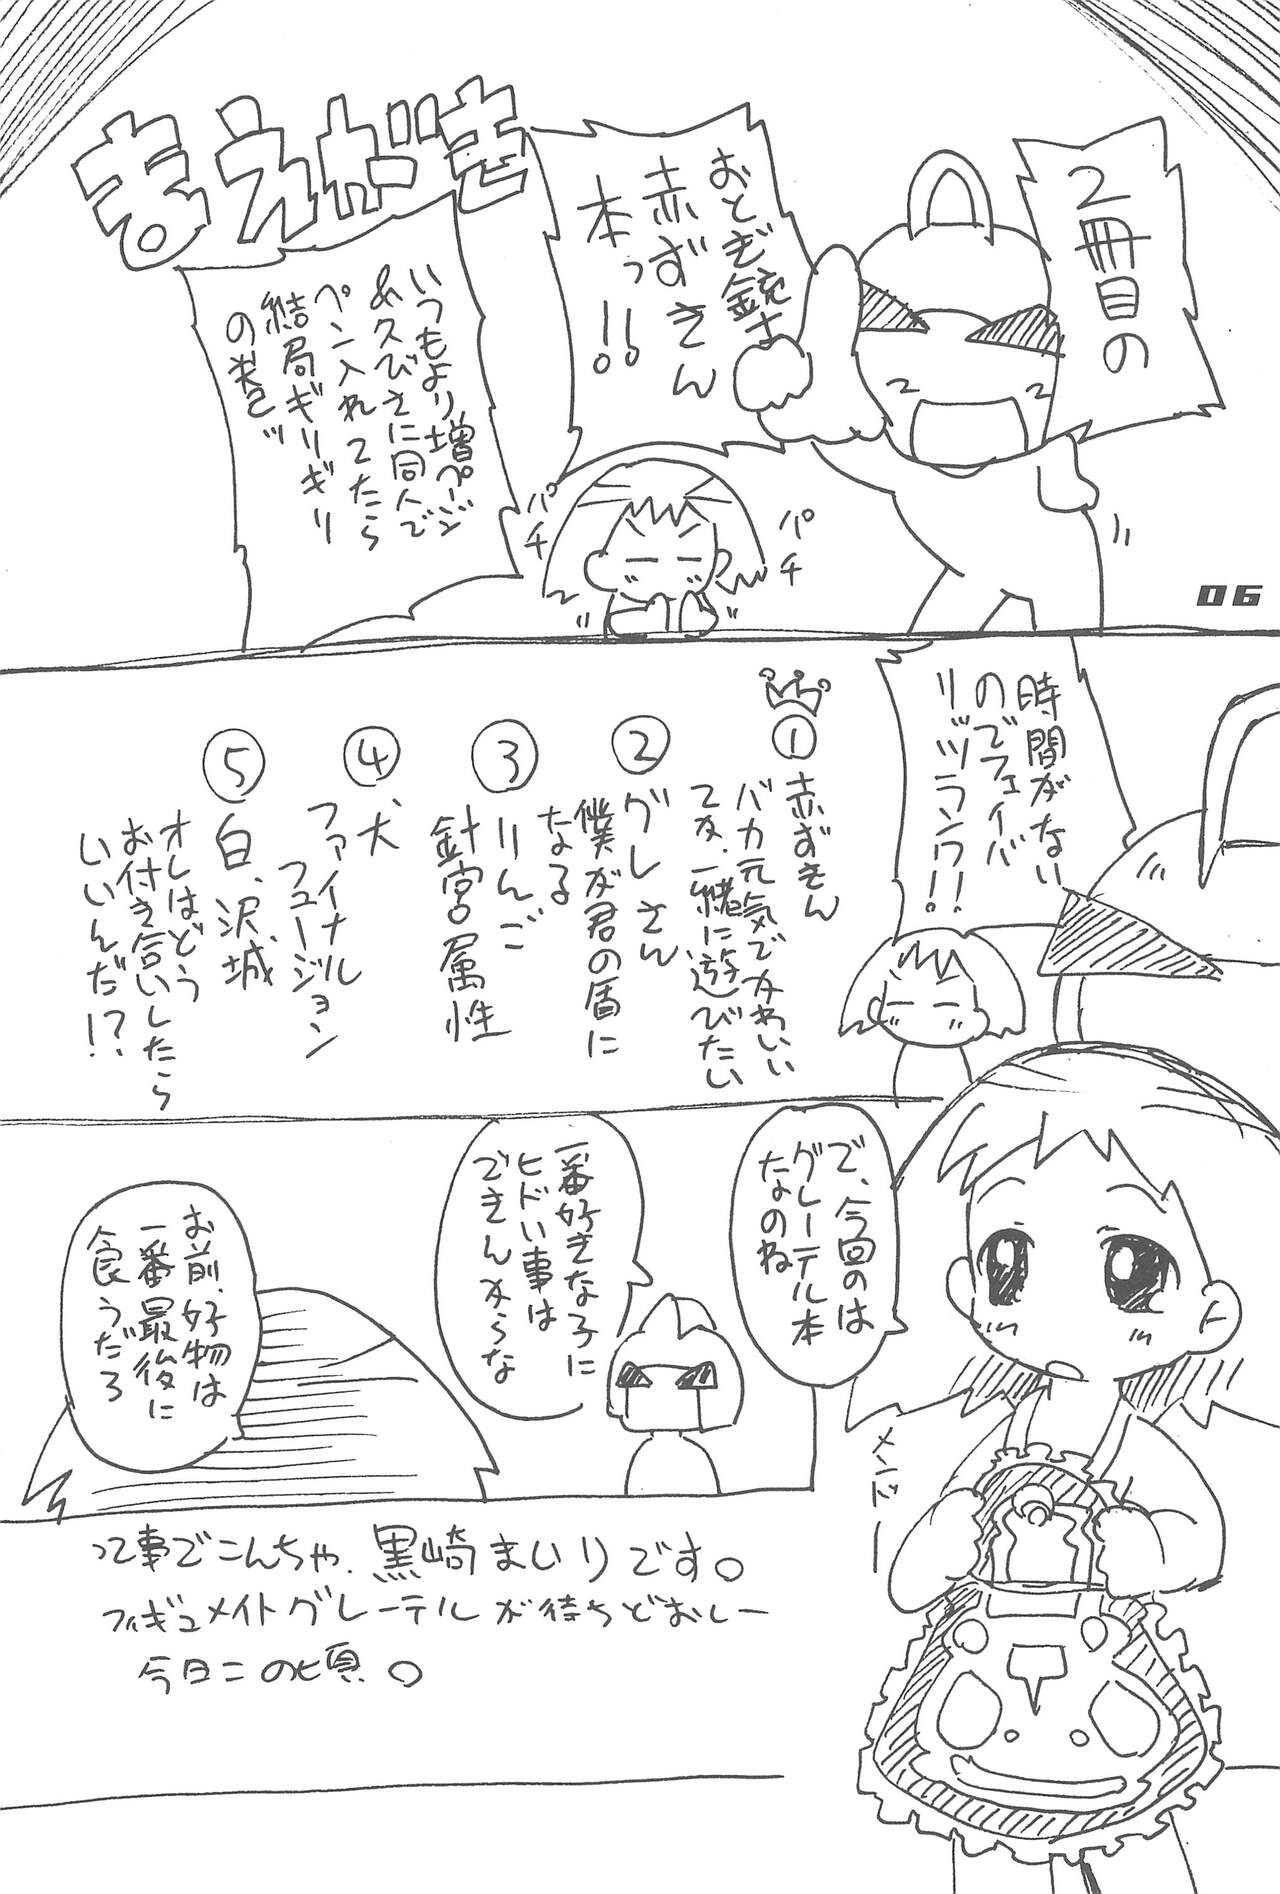 2冊目の
おとぎ銃士
赤ずきん
本っ!!
まえがき
いつもより増ページ
&久びさに同人で
ペン入れてたら
結局ギリギリ
の巻ッ
パチ
パチ
06
時間がない
のでフェイバ
リッツランク!!
①赤ずきん
バカ元気でかわいい
てか、一緒に遊びたい
②グレさん
僕が君の盾に
なる
③りんご
針宮属性
④犬
ファイナル
フュージョン
⑤白、沢城
オレはどう
お付き合いしたら
いいんだ!?
で、今回のは
グレーテル本
なのね
一番好きな子に
ヒドい事は
できんからな
お前、好物は
一番最後に
食うだろ
メンドー
って事でこんちゃ、黒崎まいりです。
フィギュメイトグレーテルが待ちどおしー
今日この頃。